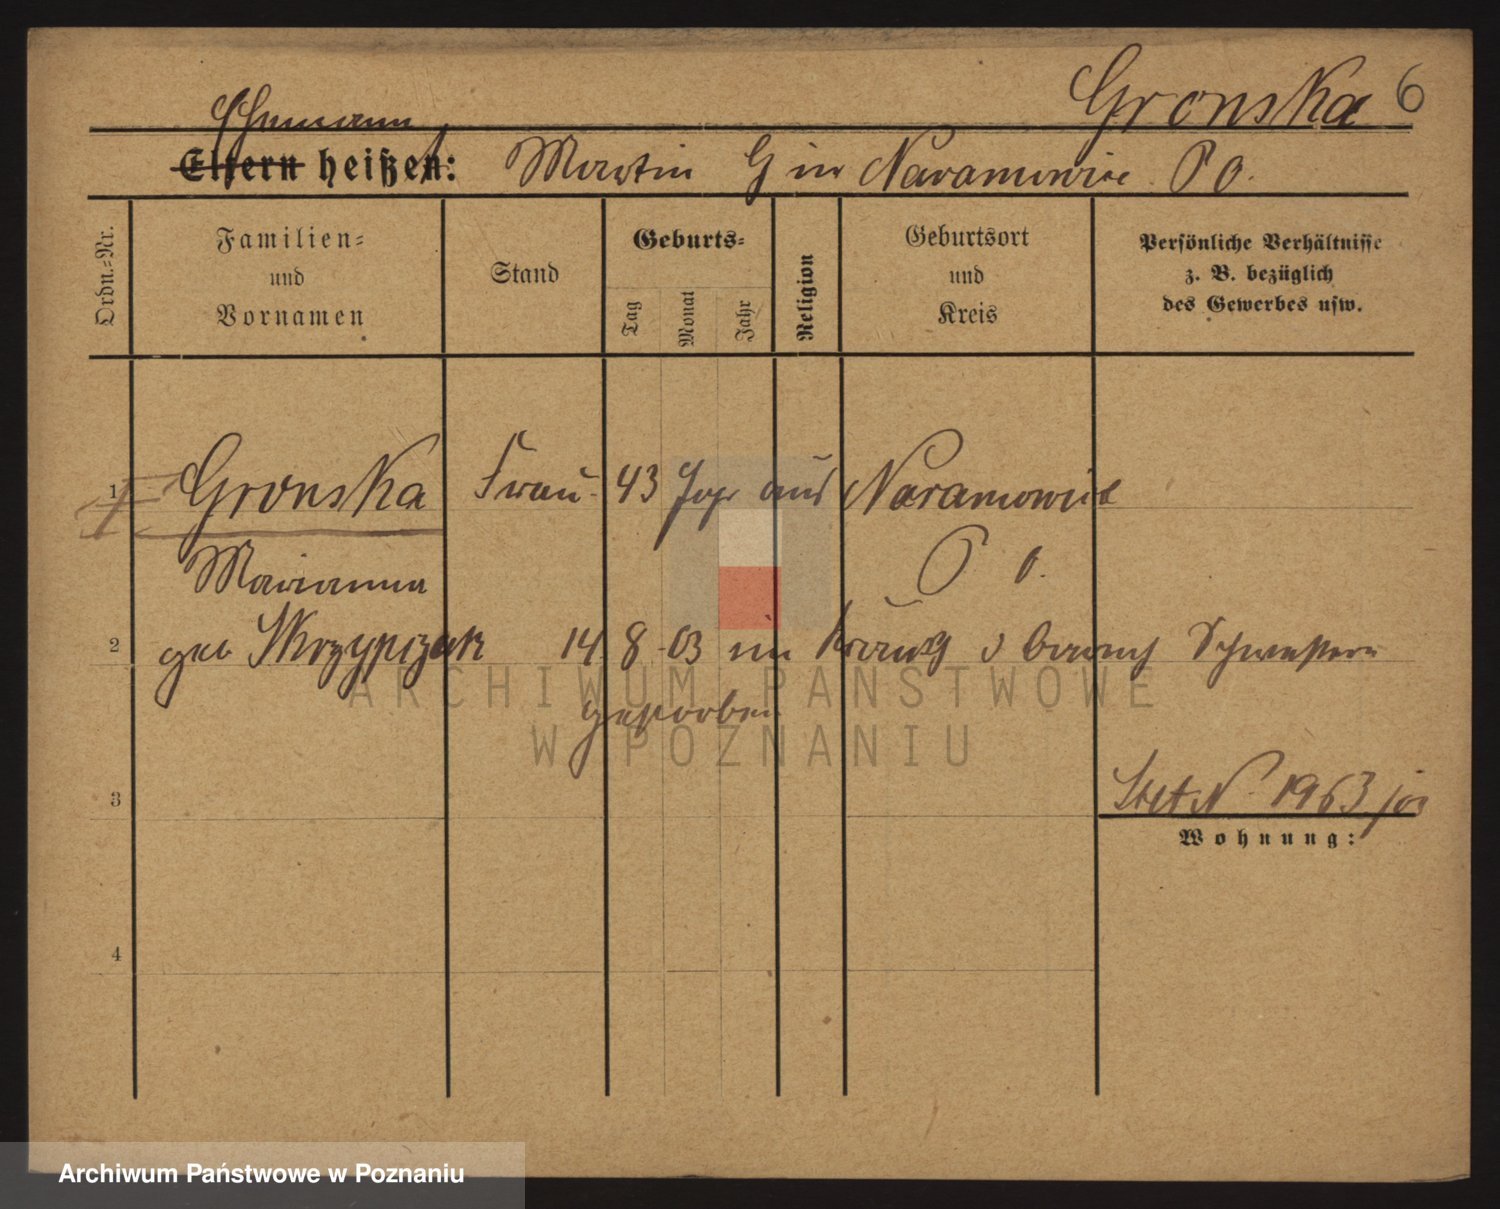 Gronska 6
Ehemann
Eltern heißen: Martin G in Naramowice P O.
Ordn.-Nr.
Familien-
und
Vornamen
Stand
Geburts-
Tag
Monat
Jahr
Religion
Geburtsort
und
Kreis
Persönliche Verhältnisse
z. B. bezüglich
des Gewerbes usw.
1 Gronska Frau 43 Jahr aus Naramowice
Marianna P O.
2 geb Skrzypczak 14 8 03 im d barmh Schwestern
gestorben
3
N 1963
Wohnung:
4
ARCHIWUM PAŃSTWOWE
W POZNANIU
Archiwum Państwowe w Poznaniu